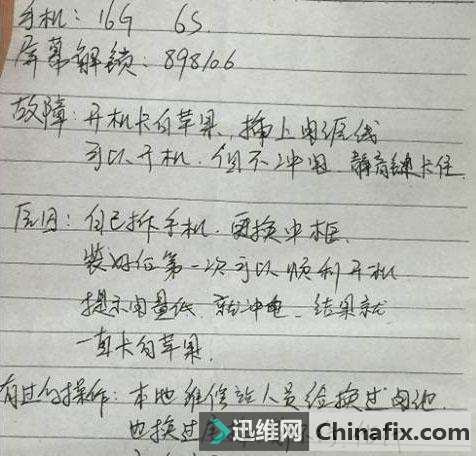 手机：16G 6S
屏幕解锁：898106
故障：开机卡白苹果，插上电源线
可以开机，但不冲电 静音键卡住
原因：自己拆手机，更换中框，
装好后第一次可以顺利开机
提示电量低，就冲电，结果就
一直卡白苹果。
有过的操作：本地维修站人员给换过电池
也换过
迅维网 Chinafix.com